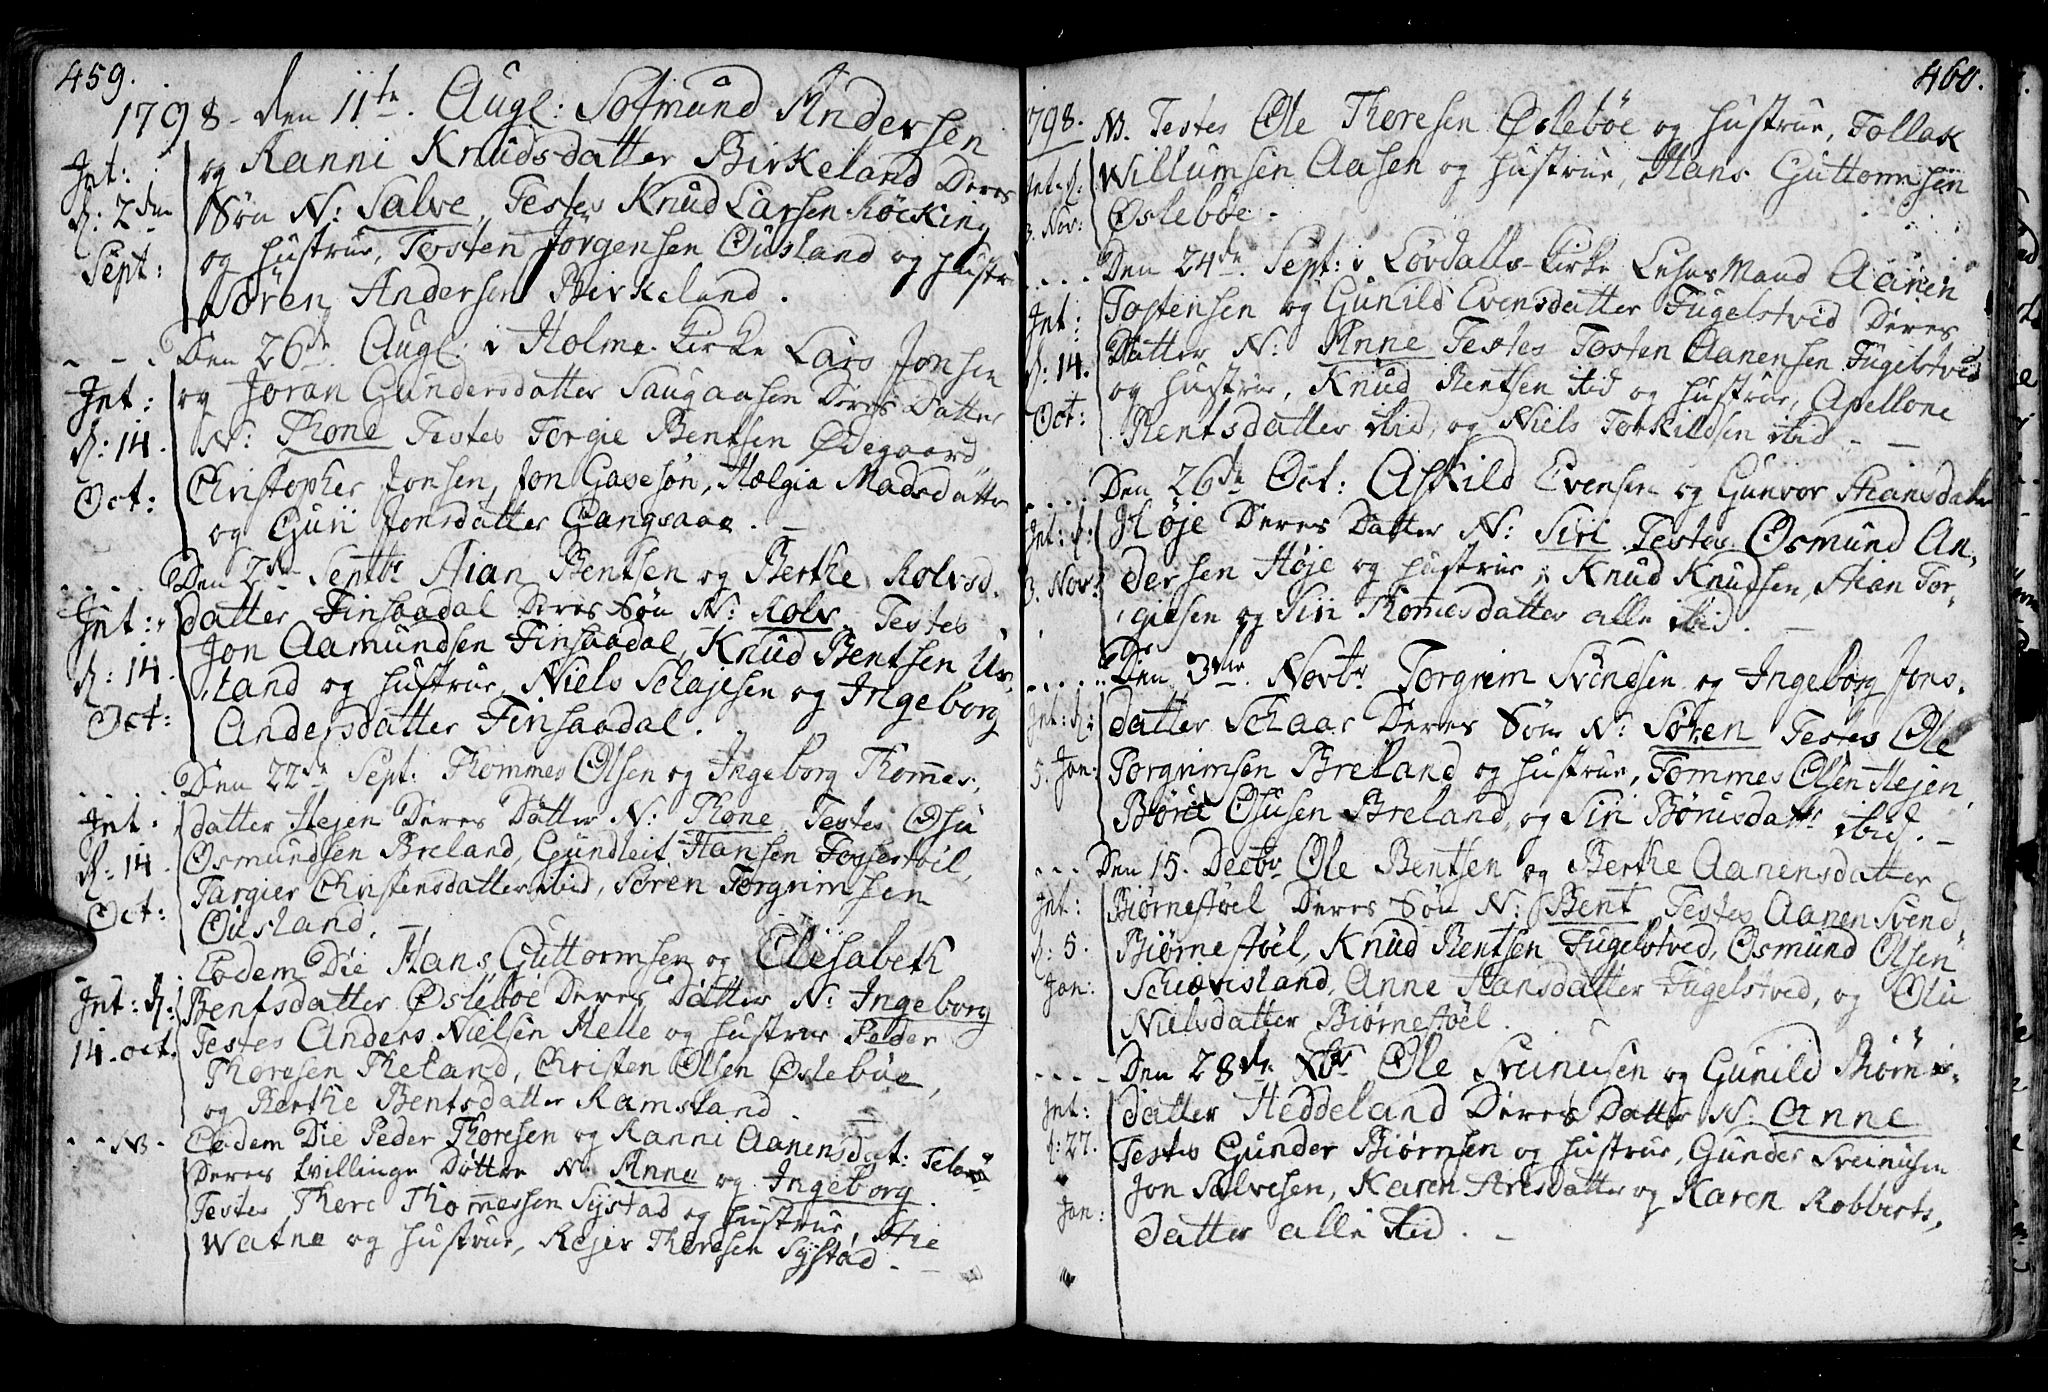 459.
1798 - den 11te. Augl: Sosmund Andersen
Int: og Ranni Knudsdatter Birkeland Deres
R: 2den Søn N: Salve, Testes Knud Larsen Röcking
Sept: og hustrue, Tosten Jørgensen Ousland og hustr
Sören Andersen Birkeland.
- - . Den 26de Augl: i Holme Kirke Lars Jonsen
Int: og Joran Gundersdatter Saugaasen Deres Datter
R: 14. N: Thone Testes Torgie Bentsen Ødegaard
Oct: Christopher Jonsen, Jon Gavesøn, Hælgia Madsdatter
og Guri Jonsdatter Gangsaae. -
- - - . Den 2den Septbr Stian Bentsen og Berthe Rolvsd.
Int: datter Finsaadal Deres Søn N: Rolv. Testes
R: 14. Jon Aamundsen Finsaadal, Knud Bentsen Uv-
Oct: land og hustrue, Niels Schajesen og Ingeborg
Andersdatter Finsaadal.
- - - - . Den 22de Sept: Thommes Olsen og Ingeborg Thom̅es-
Int. datter Hejen Deres Datter N: Thone, Testes Osu
R: 14. Osmundsen Breland, Gundleit Hansen Fossestöl,
Oct: Targier Christensdatter ibid, Sören Torgrimsen
Ousland. -
- - . Eodem Die Hans Guttormsen og Elisabeth
Int: R: Bentsdatter Øslebøe Deres Datter N: Ingeborg
14. oct. Testes Anders Nielsen Helle og hustrue Peder
Thoresen Theland, Christen Olsen Øslebøe,
og Berthe Bentsdatter Ramsland.
- - NB - Eodem Die Peder Thoresen og Ranni Aanensdat: Teland
Deres tvillinge Døttre N: Anne og Ingeborg.
Testes Thore Thomessen Systad og hustrue,
Watne og hustrue, Rejer Thoresen Systad. -
460.
798. NB. Testes Ole Thoresen Øslebøe og hustrue, Tollak
Int: R: Willumsen Aasen og hustrue, Hans Guttormsen
3. Nov: Øslebøe.
- - - . Den 24de Sept: i Løvdalls-Kirke Aanen
Int: Tostensen og Gunild Evensdatter Fugelstved Deres
R: 14. Datter N: Anne Testes Tosten Aanensen Fugelstved
Oct: og hustrue, Knud Bentsen ibid og hustrue, Apellone
Bentsdatter ibid, og Niels Torkildsen ibid - -
- - - . Den 26de Oct: Askild Evensen og Gunvor Stiansdatter
Int: R: Høje Deres Datter N: Siri Testes Osmund An-
3. Nov: dersen Høje og hustrue, Knud Knudsen, Stian Tor-
giesen og Siri Thomesdatter alle ibid. -
- - - - . Den 3die. Novbr Torgrim Svendsen og Ingeborg Jons-
Int: R: datter Schaar Deres Søn N: Søren Testes Ole
5. Jan: Torgrimsen Breland og hustrue, Tommes Olsen Hejen,
Børe Osusen Breland, og Siri Børusdattr ibid. -
- - - Den 15. Decbr Ole Bentsen og Berthe Aanensdatter
Int: Biørnestøel Deres Søn N: Bent, Testes Aanen Svend-
R: 5. Biørnestøel, Knud Bentsen Fugelstved, Osmund Olsen
Jan: Schievisland, Anne Hansdatter Fugelstved, og Olu
Nielsdatter Biørnestøel.
- - - - Den 28de Xbr Ole Sveinusen og Gunild Biørns-
Int: datter Heddeland Deres Datter N: Anne
R: 27. Testes Gunder Biørnsen og hustrue, Gunder Sveinusen
Jan: Jon Salvesen, Karen Arisdatter og Karen Robberts-
datter alle ibid. -